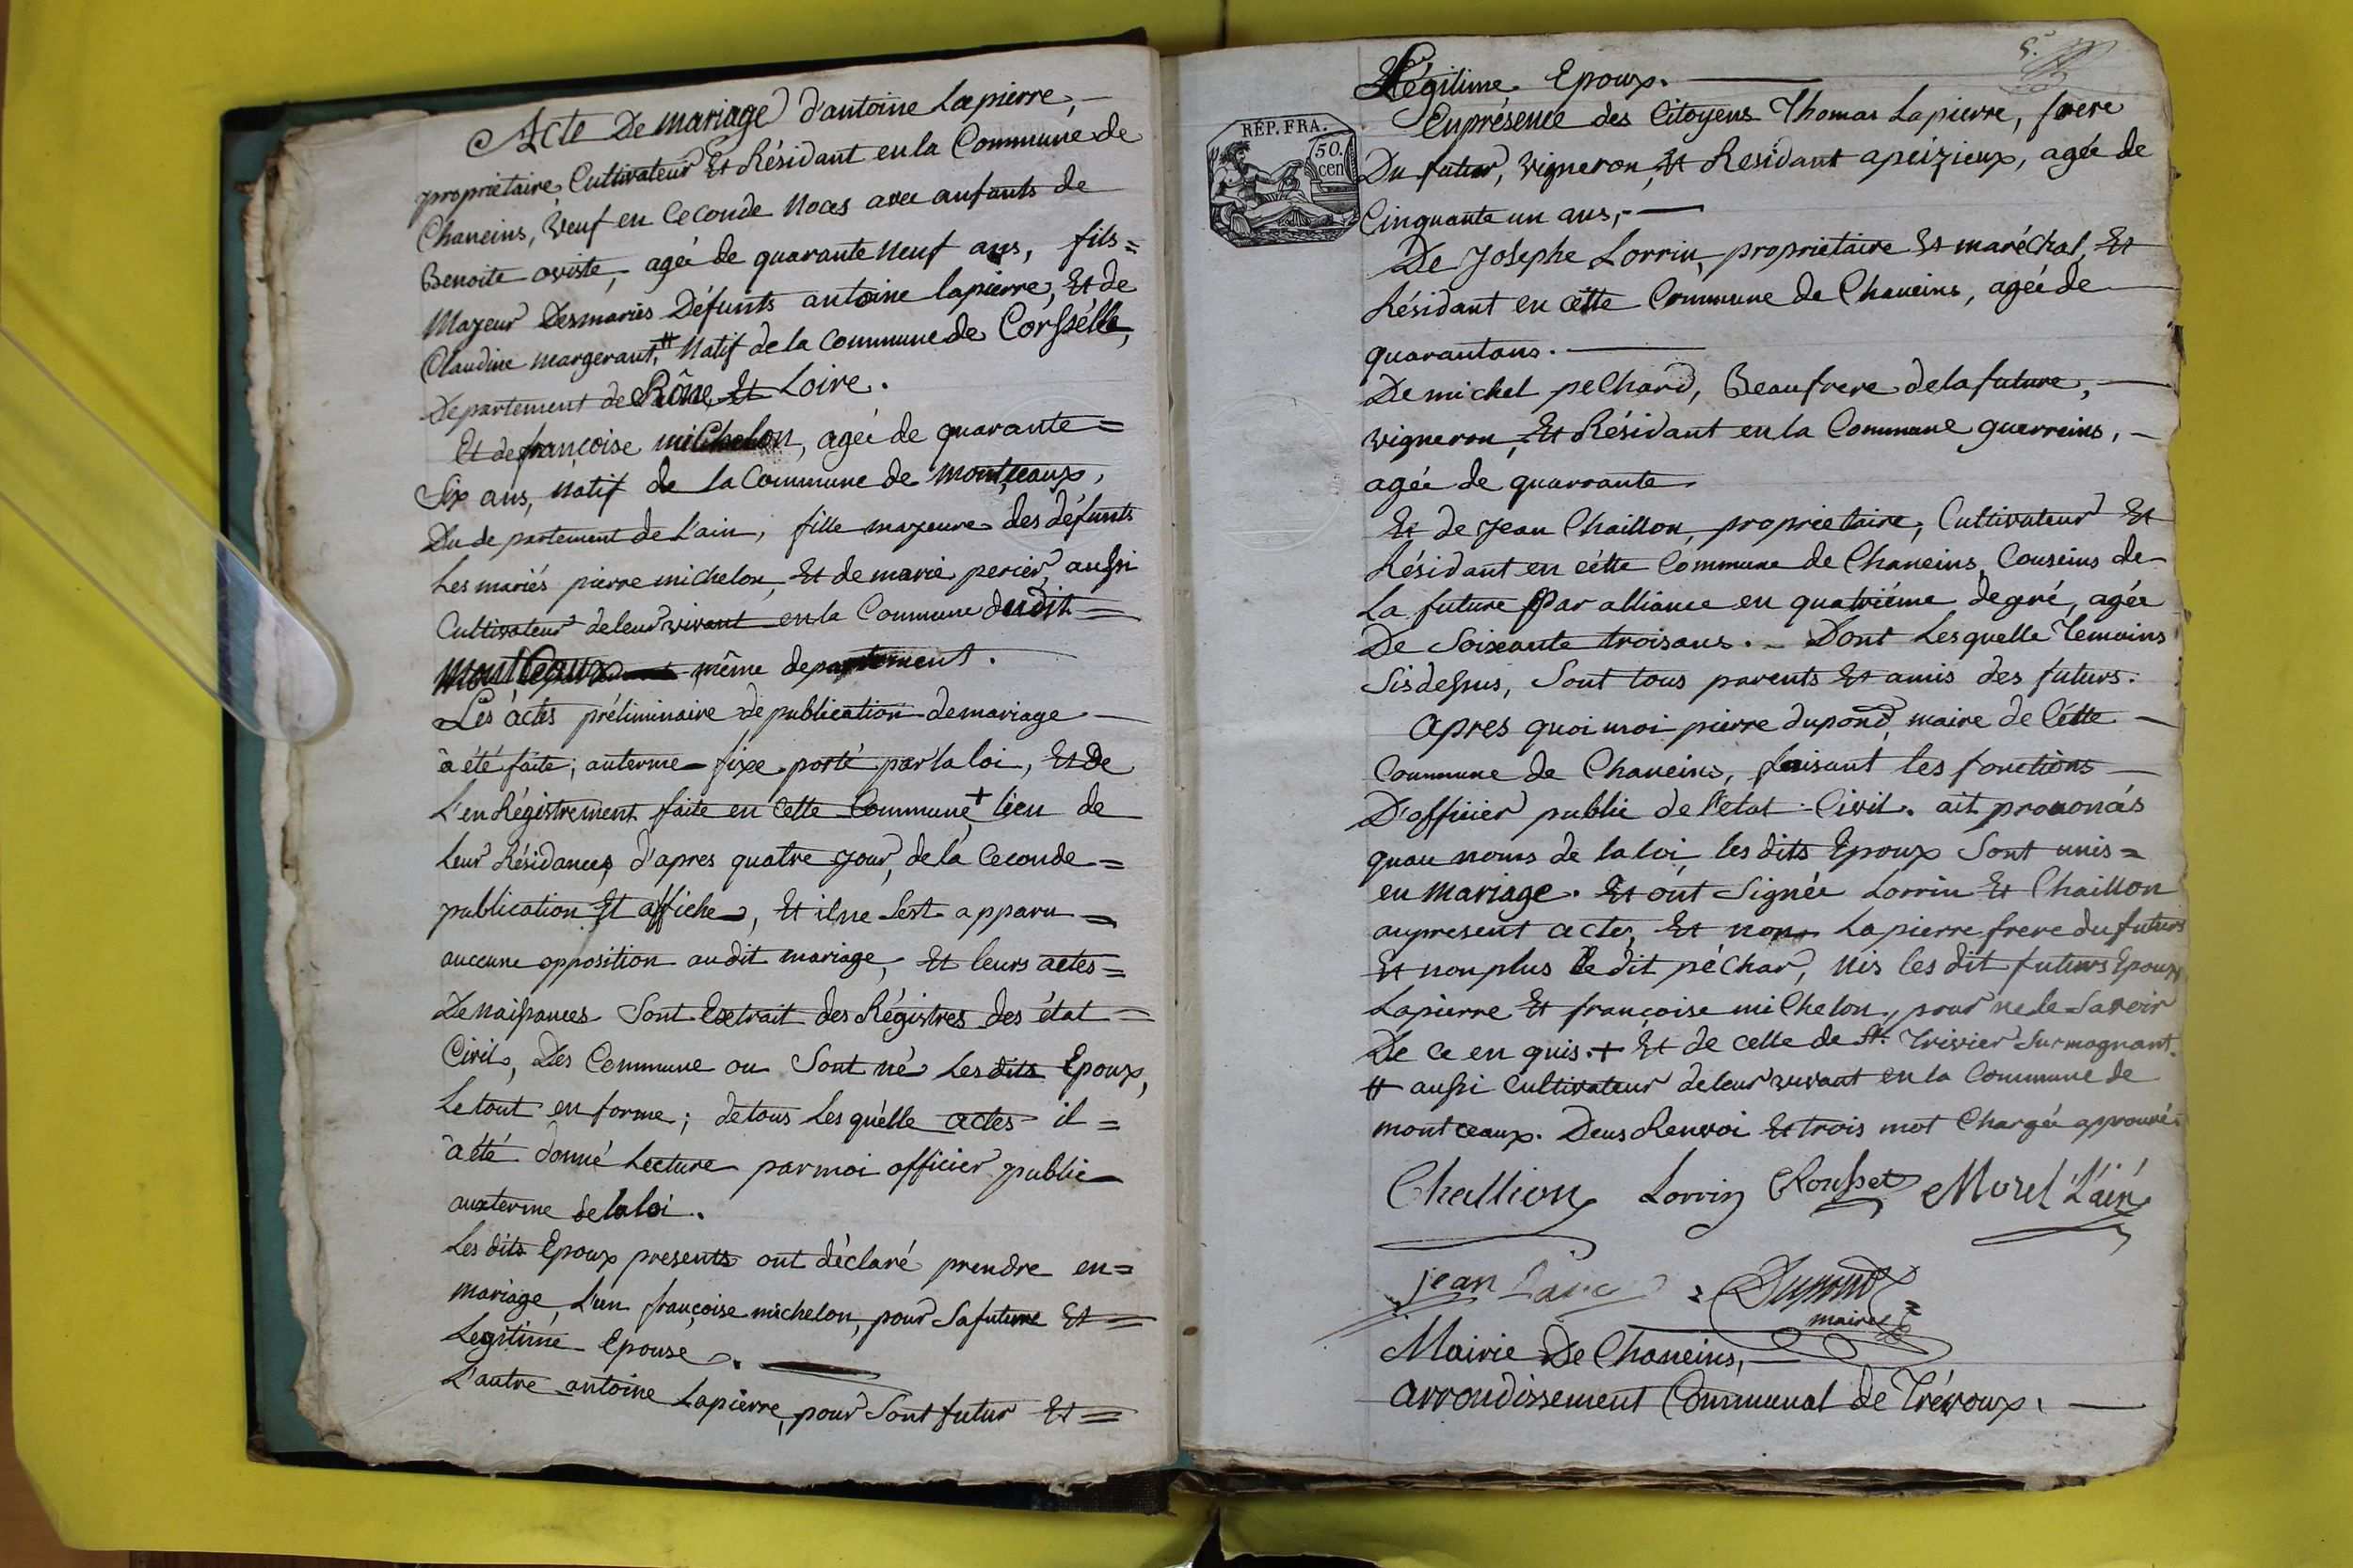 Acte De mariage d'antoine Lapierre, —
propriétaire, Cultivateur Et Résidant en la Commune de
Chaneins, Veuf en Ceconde Noces avec anfants de
Benoite oviste, agée de quarante neuf ans, fils =
Mazeur Desmariés Défunts antoine lapierre, Et de
Claudine margerant, # Natif de la Commune de Corssélle,
Departement de Rône Et Loire.
Et de françoise miChelon, agée de quarante =
Six ans, natif de la Commune de Montceaux,
Du departement de L'ain, fille mazeure des défunts
Les mariés pierre michelon, Et de marie perier, aussi
Cultivateur de leur vivant en la Commune dudit =
Montceaux même departement.
Les actes préliminaire de publication de mariage —
à été faite, auterme fixe porté par la loi, Et De
L'enRégistrement faite en Cette Commune + lieu de
Leur Résidances, d'apres quatre jour, de la Ceconde =
publication Et affiche, Et ilne Sest apparu =
auceune opposition audit mariage, Et leurs actes =
De naissances Sont Extrait des Régistres des état =
Civil, Des Commune ou Sont né Les dits Epoux,
Le tout en forme; de tous Les quélle actes il =
à été donné Lecture par moi officier public
auxterme de la loi.
Les dits Epoux presents ont déclaré prendre en =
mariage, L'un françoise michelon, pour Sa future Et =
Legitime Epouse. —
L'autre antoine Lapierre, pour Sont futur Et =
5.
Légitime Epoux. —
RÉP. FRA.
50.
cen
En présence des Citoyens Thomas Lapierre, frere
Du futur, vigneron, Et Residant a peizieux, agée de
Cinquante un ans, —
De Josephe Lorrin, propriétaire Et maréchal, Et
Résidant en cette Commune de Chaneins, agée de
quarantans. —
De michel peChard, Beaufrere de la future, —
vigneron, Et Résidant en la Commune guerreins, —
agée de quarrante
Et de Jean Chaillon, proprietaire, Cultivateur Et
Résidant en cétte Commune de Chaneins, Couseins de
La future Par alliance en quatriéme degré, agée
De Soixante troisans. — Dont Lesquelle Temoins
Sisdessus, Sont tous parents Et amis des futurs.
Apres quoi moi pierre dupond, maire de Cétte —
Commune de Chaneins, faisant les fonctions —
D'officier public de l'etat Civil. ait prononcés
quau noms de la loi, les dits Epoux Sont unis =
en mariage. Et ont Signée Lorrin Et Chaillon
aupresent acte, Et non Lapierre frere du futurs
Et nonplus le dit péchar, nis les dit futurs Epoux
Lapierre Et françoise miChelon, pour ne le Savoir
De ce en quis. + Et de celle de St. Trivier Surmognant.
# aussi Cultivateur de leur vivant en la Commune de
montceaux. Deus Renvoi Et trois mot Chargée approuvé.
Challion Lorrin Rousset Morel L'ainé
jean Dupond
maire
Mairie De Chaneins, —
Arrondissement Communal de Trévoux. —